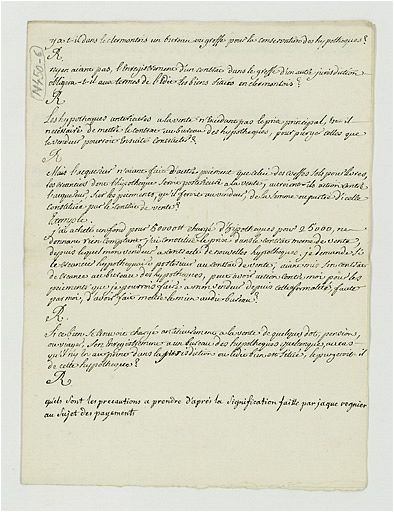 y a-t-il dans le clermontois un bureau ou greffe pour la conservation des hypotheques?
R
n'y en aiant pas, l'enregistrement d'un contrat dans le greffe d'un autre jurisdiction
obligea-t-il aux termes de l'Edit les biens situés en clermontois?
R
Les hypotheques anterieures a la vente n'excedant pas le prix principal, est-il
necessaire de mettre le contrat au bureau des hypotheques, pour purger celles que
le vendeur pourroit ensuite contracter?
R
Mais l'aquereur n'aiant fait d'autre paiement que celui des
les creanciers dont l'hypotheque seroit posterieure a la vente, auront-ils action contre
l'aquereur, sur les paiements, qu'il feroit au vendeur, de la somme ou partie d'icelle
constituée par le contrat de vente?
Exemple.
J'ai acheté un fond pour 60000 chargé d'hypotheques pour 25000, ne
donnant rien comptant, j'ai constitué le prix dans le contrat meme de vente,
depuis lequel mon vendeur a contracté de nouvelles hypotheques, je demande si
le creancier hypothequaire posterieur au contrat de vente, aiant mis son contrat
de creance au bureau des hypotheques, peut avoir action contre moi pour les
paiements que je pourrois faire a mon vendeur depuis cette formalité, faute
par moi, d'avoir fait mettre le mien audit bureau?
R.
Si ce bien se trouvoit chargé anterieurement a la vente de quelques dot, pension,
ou viager, sans enregistrement a un bureau des hypotheques quelconque, au cas
qu'il n'y en ait point dans la jurisdiction ou led. bien est situé, le purgeroit-il
de cette hypotheque?
R
quels sont les precautions a prendre d'après la signification faitte par jaque regnier
au sujet des payements
N450-6